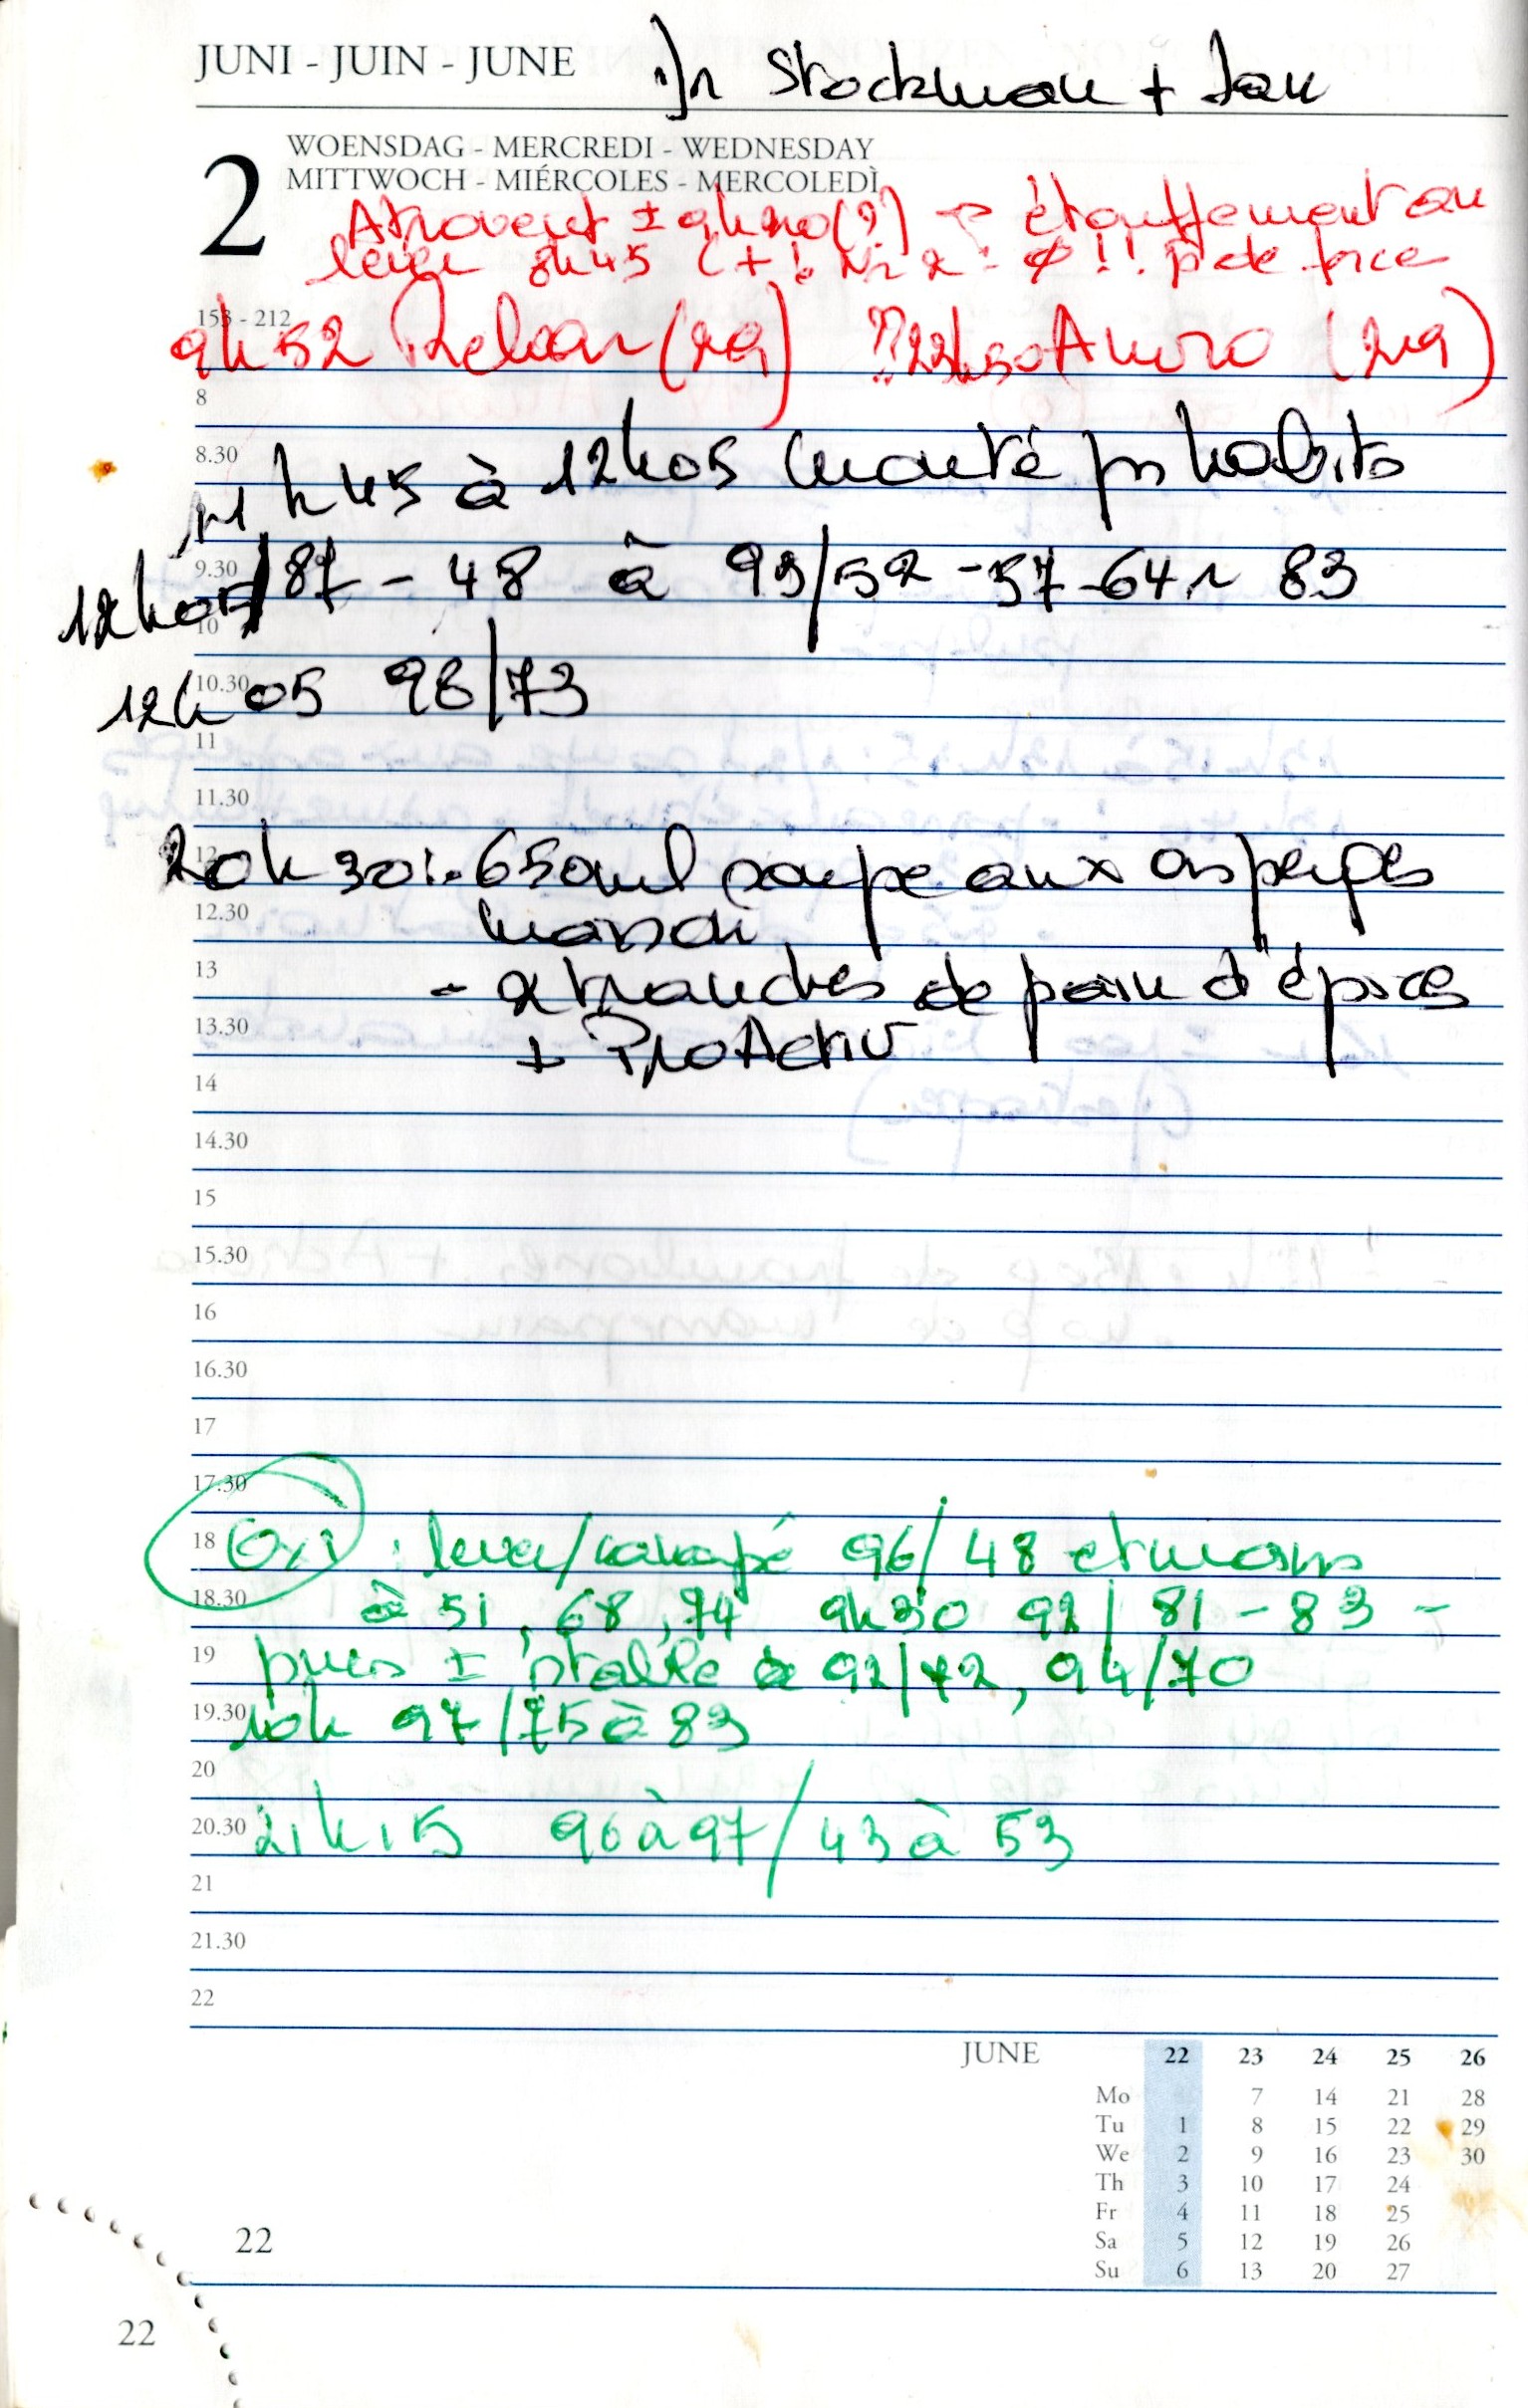 JUNI - JUIN - JUNE Stockman + Jan
2
WOENSDAG - MERCREDI - WEDNESDAY
MITTWOCH - MIÉRCOLES - MERCOLEDÌ
Atrovent ± (?) → étouffement au
lever 8h45 (+ !! p de force
153 - 212
9h52 Relvar (29) ?? 22h30 Anoro (29)
8
8.30
11h45 à 12h05 monté habits
9.30
12h05 / 87 - 48 à 93/52 - 57 - 64 83
10
10.30
12h05 98/73
11
11.30
20h30 : - 650ml soupe aux asperges
12
12.30
maison
13
- 2 tranches de pain d'épices
13.30
+ ProActiv
14
14.30
15
15.30
16
16.30
17
17.30
18
Oxi : lever/canapé 96/48 et moins
18.30
à 51, 68, 74 9h30 92/81 - 83 -
19
puis ± stable à 92/72, 94/70
19.30
10h 97/75 à 83
20
20.30
21h15 96 à 97/43 à 53
21
21.30
22
JUNE 22 23 24 25 26
Mo 7 14 21 28
Tu 1 8 15 22 29
We 2 9 16 23 30
Th 3 10 17 24
Fr 4 11 18 25
Sa 5 12 19 26
Su 6 13 20 27
22
22